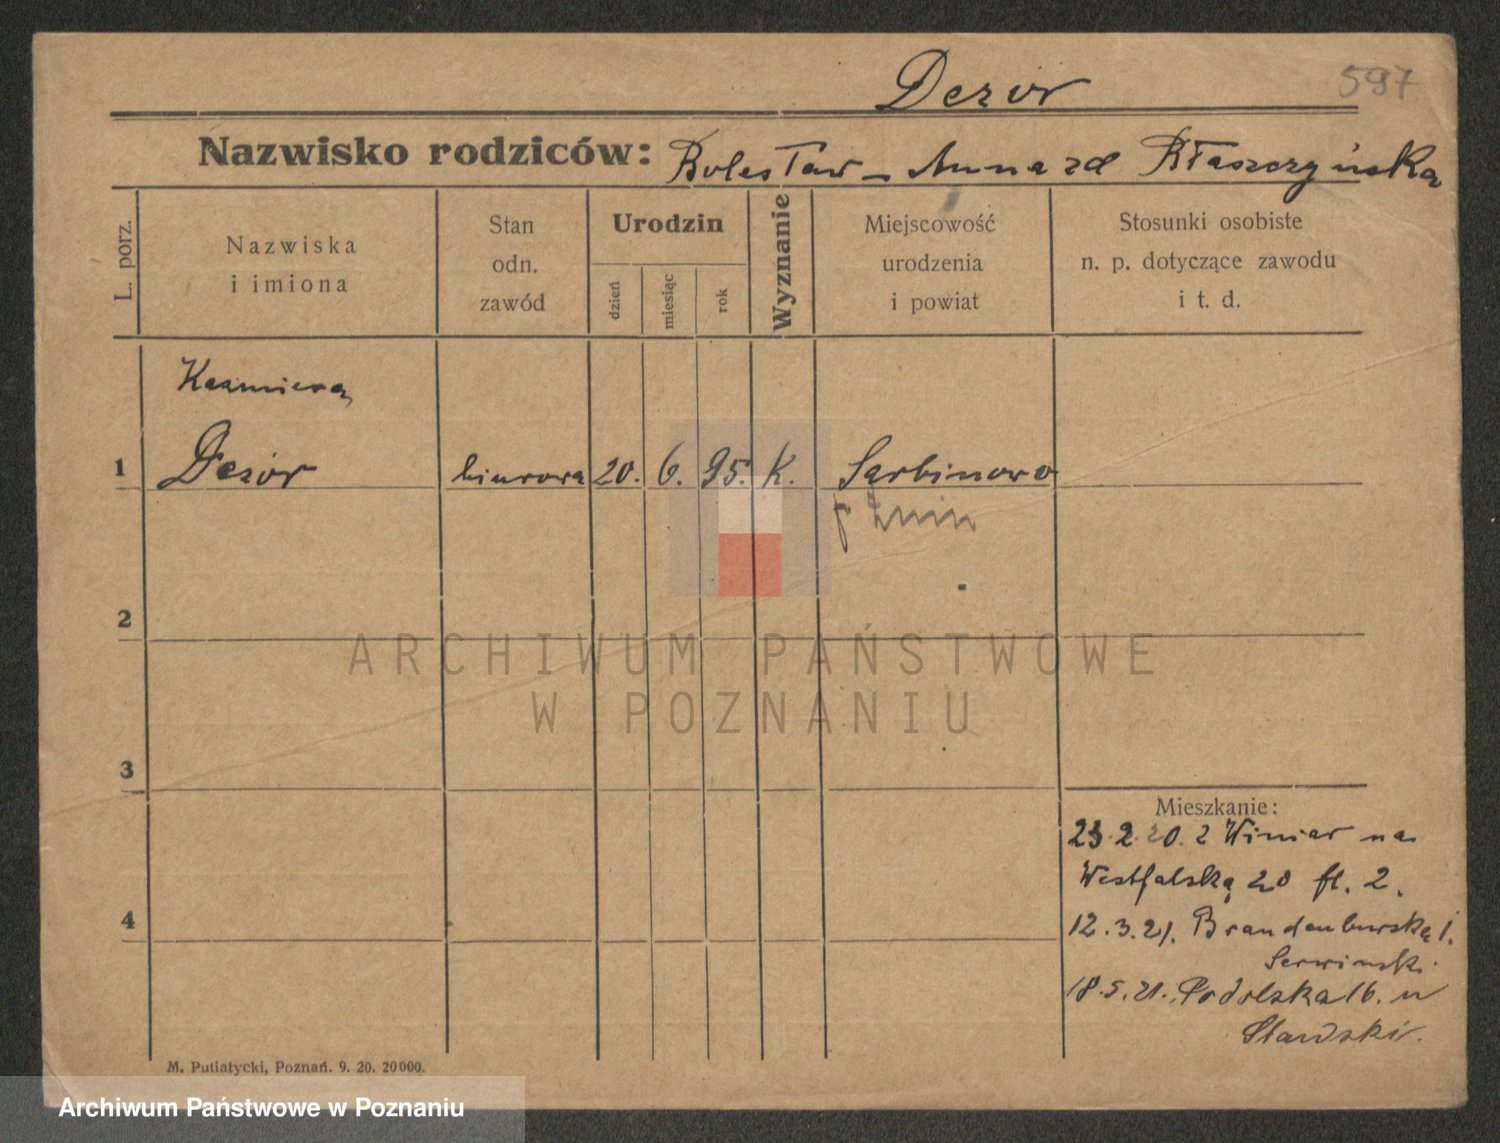 597
Dezór
Nazwisko rodziców: Bolesław - Anna zd Błaszczyńska
L. porz.
Nazwiska
i imiona
Stan
odn.
zawód
Urodzin
dzień
miesiąc
rok
Wyznanie
Miejscowość
urodzenia
i powiat
Stosunki osobiste
n. p. dotyczące zawodu
i t. d.
Kazmiera
1 Dezór biurowa 20. 6. 95. K. Sarbinowo
Żnin
2
3
4
ARCHIWUM PAŃSTWOWE
W POZNANIU
Mieszkanie:
23.2.20. z Winiar na
Westfalską 20 ft. 2.
12.3.21. Brandenburska 1.
Serwinski.
18.5.21. Podolska 16. u
Stawski.
M. Putiatycki, Poznań. 9. 20. 20000.
Archiwum Państwowe w Poznaniu